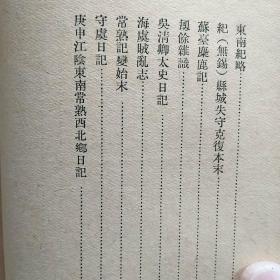 東南紀略
紀（無錫）縣城失守克復本末
蘇臺麋鹿記
劫餘雜識
吳清卿太史日記
海虞賊亂志
常熟記變始末
守虞日記
庚申江陰東南常熟西北鄉日記